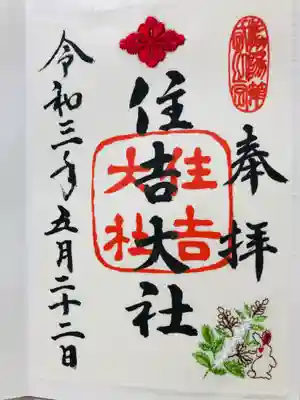 奉拝
住吉大社
住吉大社
令和三年五月二十二日